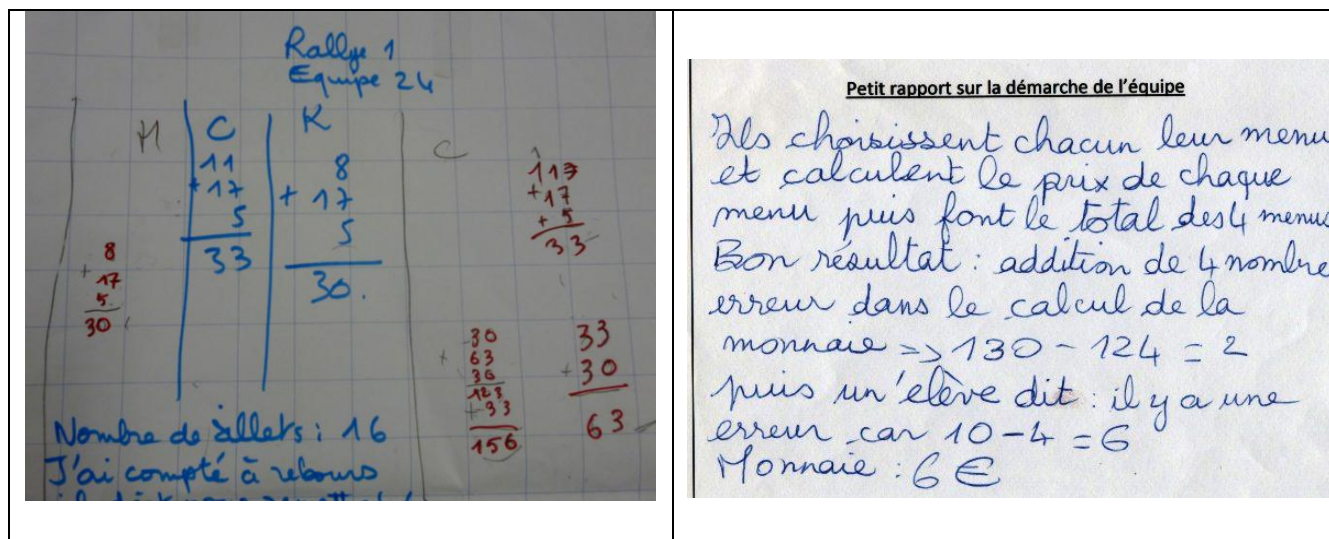 Rallye 1
Equipe 24
M
C
K
C
11
+17
5
33
8
+ 17
5
30.
8
+
17
5
30
1
117
+17
+5
33
30
+ 63
30
123
+33
156
33
+30
63
Nombre de billets : 16
J'ai compté à rebours
Petit rapport sur la démarche de l'équipe
Ils choisissent chacun leur menu
et calculent le prix de chaque
menu puis font le total des 4 menus
Bon résultat : addition de 4 nombre
erreur dans le calcul de la
monnaie => 130 - 124 = 2
puis un élève dit : il y a une
erreur car 10 - 4 = 6
Monnaie : 6 €